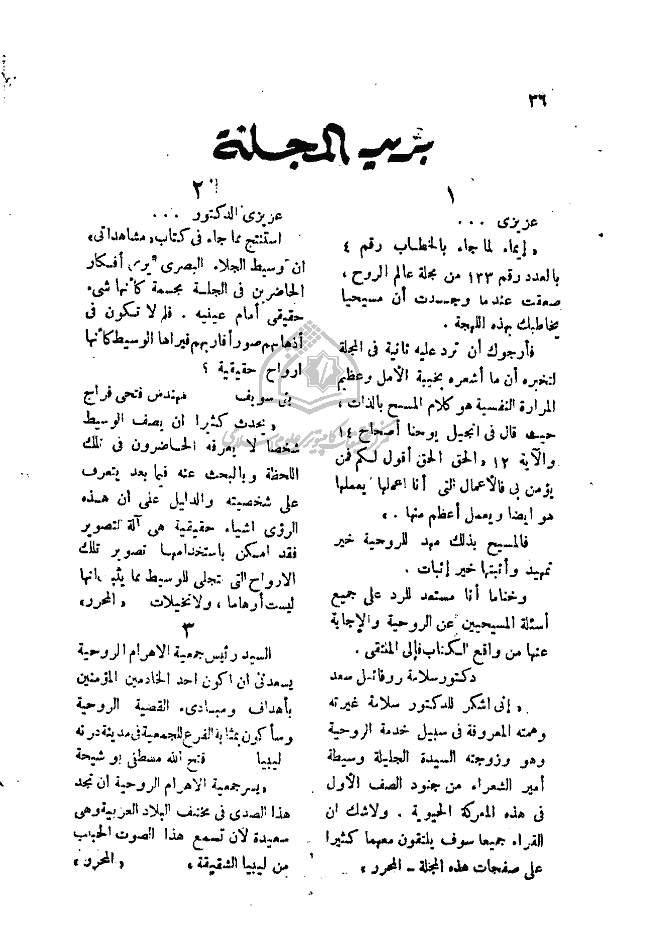 ٣٦
بريد المجلة
١
عزيزى ...
« إيماء لما جاء بالخطاب رقم ٤
بالعدد رقم ١٣٣ من مجلة عالم الروح ،
صعقت عندما وجدت أن مسيحيا
يخاطبك بهذه اللهجة .
فأرجوك أن ترد عليه ثانية فى المجلة
لتخبره أن ما أشعره بخيبة الأمل وعظيم
المرارة النفسية هو كلام المسيح بالذات ،
حيث قال فى انجيل يوحنا أصحاح ١٤
والآية ١٢ « الحق الحق أقول لكم فمن
يؤمن بى فالأعمال التى أنا اعملها يعملها
هو ايضا ويعمل أعظم منها . »
فالمسيح بذلك مهد للروحية خير
تمهيد وأثبتها خير إثبات .
وختاما أنا مستعد للرد على جميع
أسئلة المسيحيين عن الروحية والإجابة
عنها من واقع الكتاب فإلى الملتقى .
دكتور سلامة روفائيل سعد
« إنى اشكر للدكتور سلامة غيرته
وهمته المعروفة فى سبيل خدمة الروحية
وهو وزوجته السيدة الجليلة وسيطة
أمير الشعراء من جنود الصف الأول
فى هذه المعركة الحيوية . ولاشك ان
القراء جميعا سوف يلتقون معهما كثيرا
على صفحات هذه المجلة ـ المحرر »
٢
عزيزى الدكتور ...
استنتج مما جاء فى كتاب « مشاهداتى »
ان وسيط الجلاء البصرى يرى أفكار
الحاضرين فى الجلسة مجسمة كأنها شىء
حقيقى أمام عينيه . فلم لا تكون فى
أذهانهم صور أقاربهم فيراها الوسيط كأنها
ارواح حقيقية ؟
بنى سويف مهندس فتحى فراج
« يحدث كثيرا ان يصف الوسيط
شخصا لا يعرفه الحاضرون فى تلك
اللحظة وبالبحث عنه فيما بعد يتعرف
على شخصيته والدليل على أن هذه
الرؤى اشياء حقيقية هى آلة التصوير
فقد امكن باستخدامها تصوير تلك
الارواح التى تتجلى للوسيط مما يثبت انها
ليست أوهاما ، ولا تخيلات « المحرر »
٣
السيد رئيس جمعية الاهرام الروحية
يسعدنى ان اكون احد الخادمين المؤمنين
بأهداف ومبادىء القضية الروحية
وسأكون بمثابة الفرع للجمعية فى مدينة درنه
ليبيا فتح الله مصطفى بو شيحة
« يسر جمعية الاهرام الروحية ان تجد
هذا الصدى فى مختلف البلاد العربية وهى
سعيدة لان تسمع هذا الصوت الحبيب
من ليبيا الشقيقة » « المحرر »